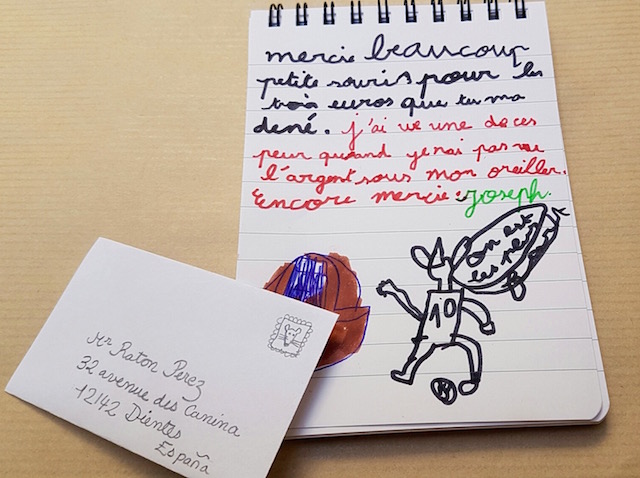 mercie beaucoup
petite souris pour les
trois euros que tu ma
dené. j'ai ue une de ces
peur quand je nai pas vu
l'argent sous mon oreiller.
Encore mercie. joseph.
on est
les
10
Mr Raton Perez
32 avenue des Canina
12142 Dientes
España